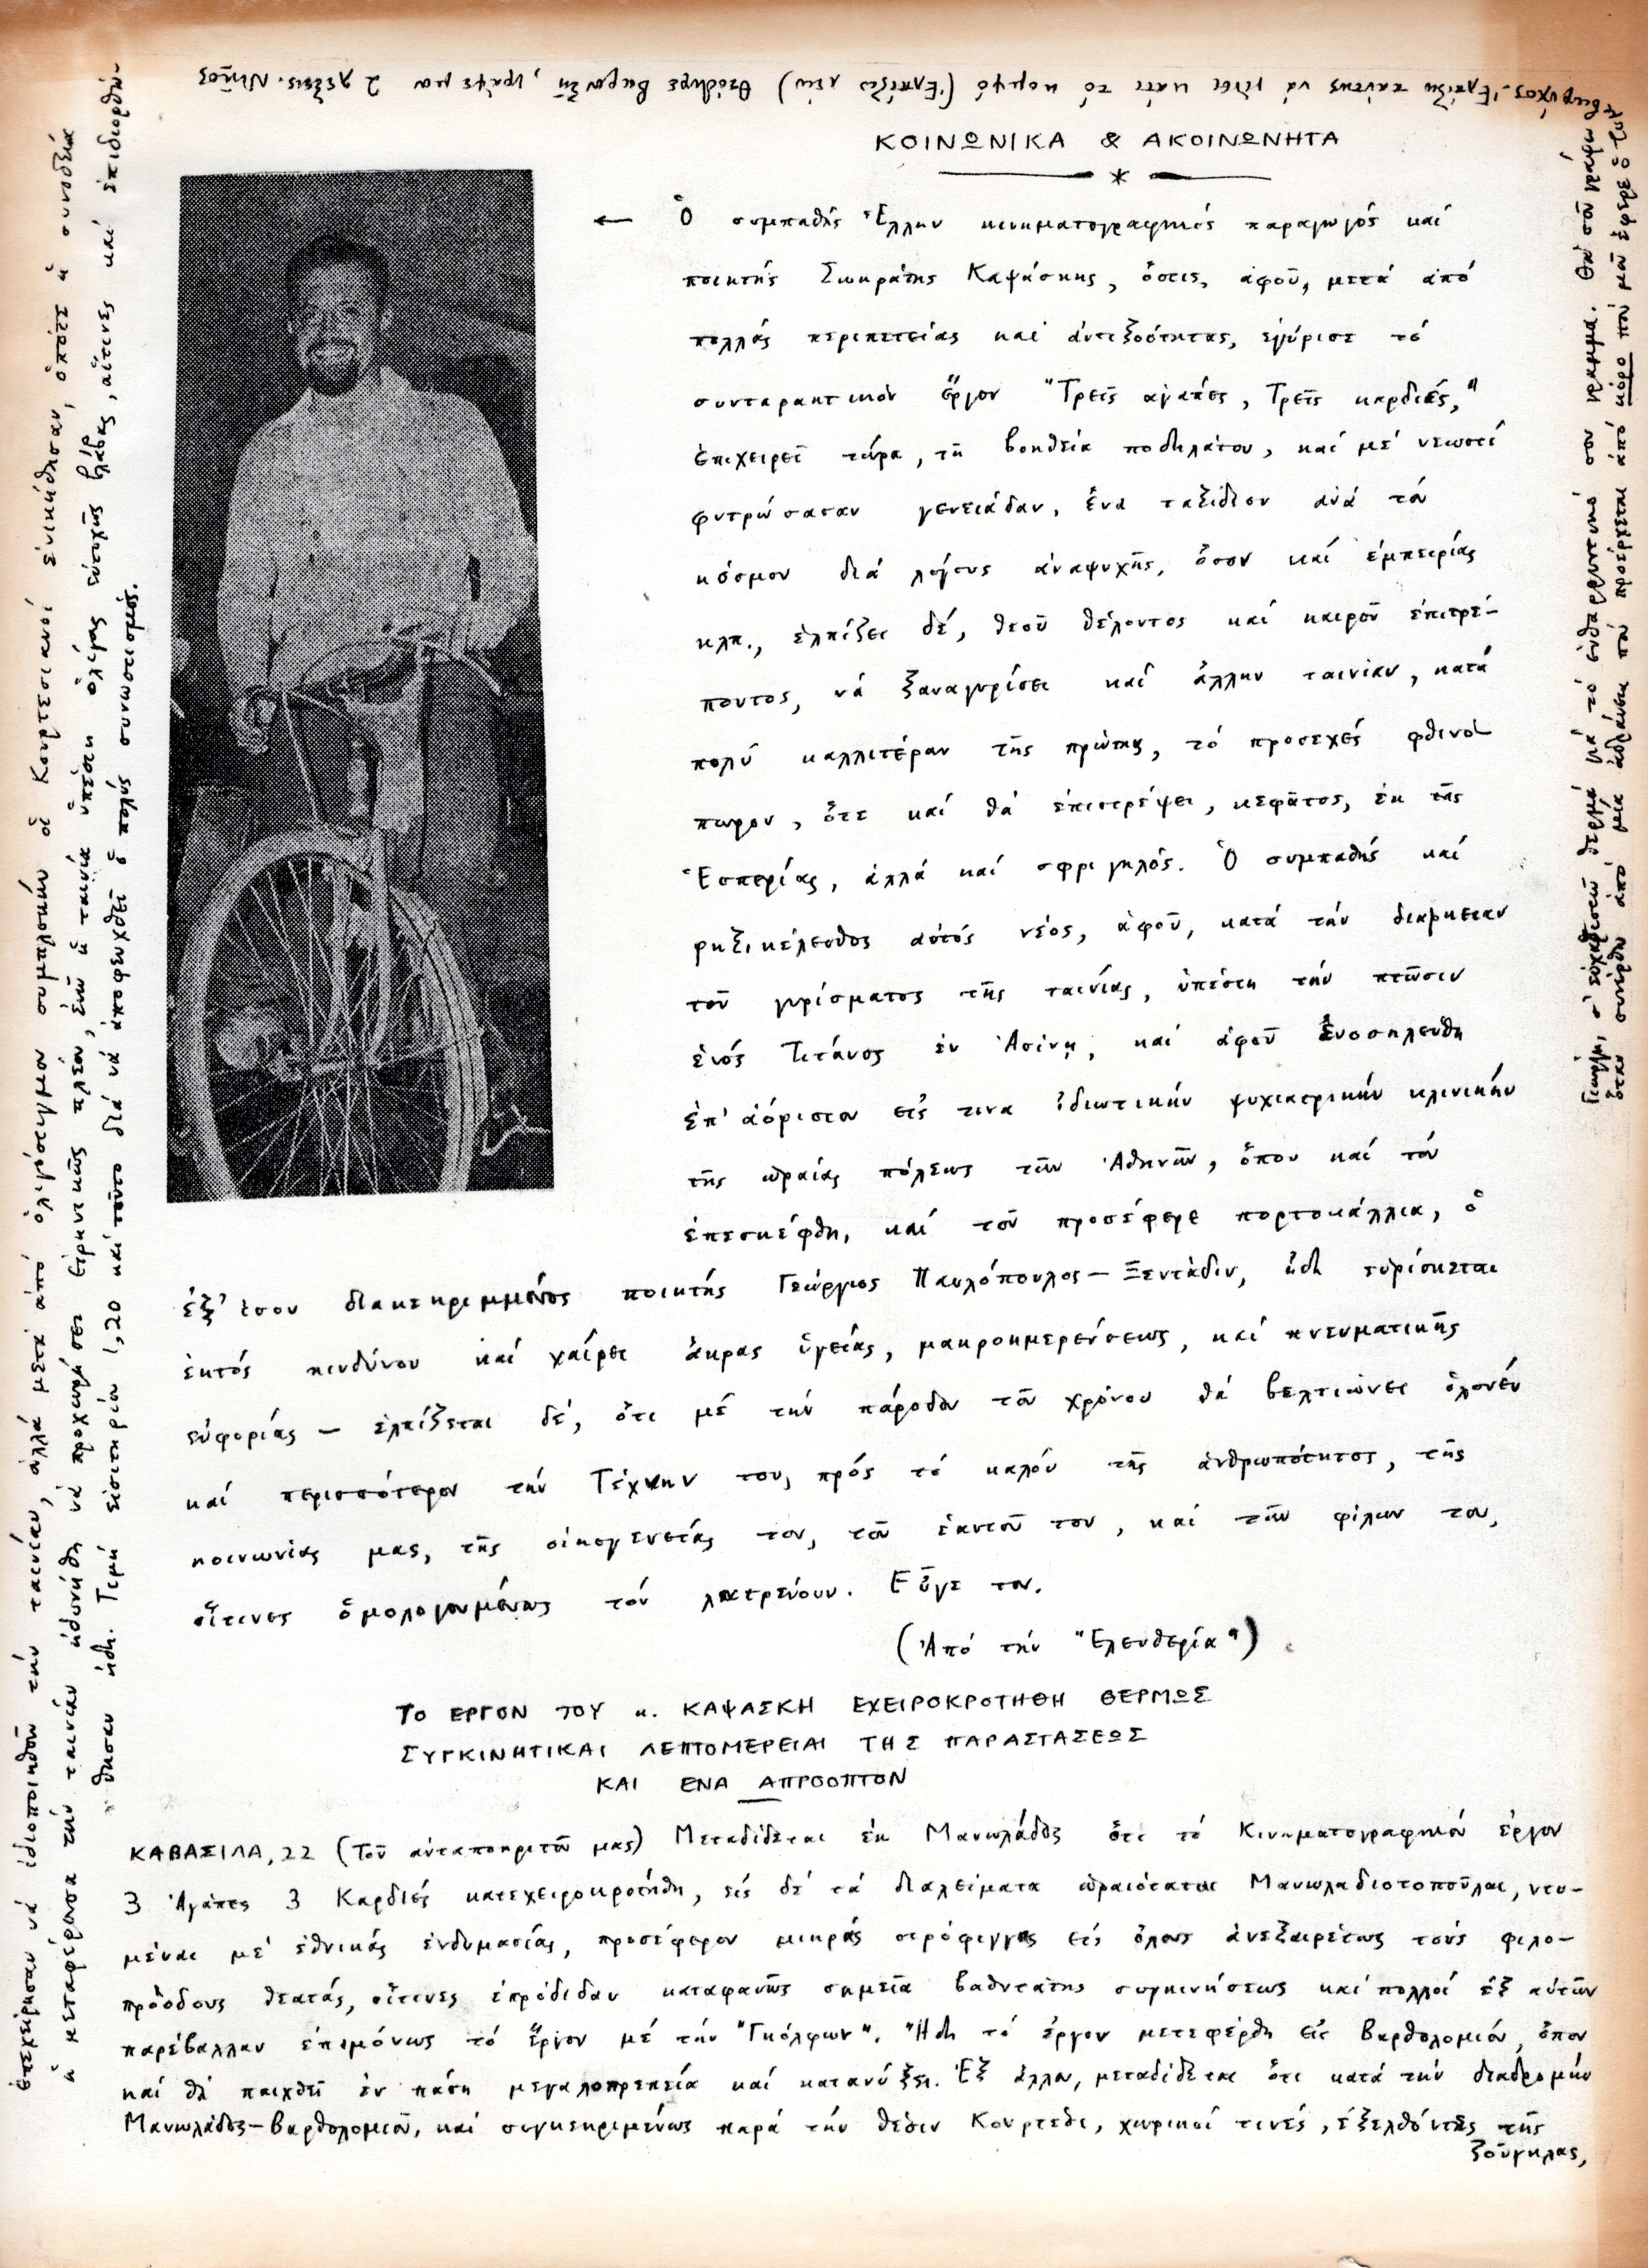 ΚΟΙΝΩΝΙΚΑ & ΑΚΟΙΝΩΝΗΤΑ
*
← Ὁ συμπαθής Ἕλλην κινηματογραφικός παραγωγός καί
ποιητής Σωκράτης Καψάσκης, ὅστις, ἀφοῦ, μετά ἀπό
πολλάς περιπετείας καί ἀντιξοότητας, εγύρισε τό
συνταρακτικόν ἔργον "Τρεῖς αγάπες, Τρεῖς καρδιές,"
ἐπιχειρεῖ τώρα, τῇ βοηθεία ποδηλάτου, καί μέ νεωστί
φυτρώσασαν γενειάδαν, ἕνα ταξίδιον ανά τόν
κόσμον διά λόγους ἀναψυχῆς, ὅσον καί ἐμπειρίας
κλπ., ἐλπίζει δέ, θεοῦ θέλοντος καί καιροῦ ἐπιτρέ-
ποντος, νά ξαναγυρίσει καί ἄλλην ταινίαν, κατά
πολύ καλλιτέραν τῆς πρώτης, τό προσεχές φθινό-
πωρον, ὅτε καί θά ἐπιστρέψει, κεφᾶτος, ἐκ τῆς
Ἑσπερίας, ἀλλά καί σφριγηλός. Ὁ συμπαθής καί
ρηξικέλευθος αὐτός νέος, ἀφοῦ, κατά τήν διάρκειαν
τοῦ γυρίσματος τῆς ταινίας, ὑπέστη τήν πτῶσιν
ἑνός Τιτάνος ἐν Ἀσίνῃ, καί ἀφοῦ ἐνοσηλεύθη
ἐπ' ἀόριστον εἰς τινα ἰδιωτικήν ψυχιατρικήν κλινικήν
τῆς ωραίας πόλεως τῶν Ἀθηνῶν, ὅπου καί τόν
ἐπεσκέφθη, καί τοῦ προσέφερε πορτοκάλλια, ὁ
ἐξ' ἴσου διακεκριμμένος ποιητής Γεώργιος Παυλόπουλος - Ξεντάδιν, ἤδη εὑρίσκεται
ἐκτός κινδύνου καί χαίρει ἄκρας ὑγείας, μακροημερεύσεως, καί πνευματικῆς
εὐφορίας - ἐλπίζεται δέ, ὅτι μέ τήν πάροδον τοῦ χρόνου θά βελτιώνει ὁλονέν
καί περισσότερον τήν Τέχνην του, πρός τό καλόν τῆς ἀνθρωπότητος, τῆς
κοινωνίας μας, τῆς οἰκογενείας του, τοῦ ἑαυτοῦ του, καί τῶν φίλων του,
οἵτινες ὁμολογουμένως τόν λατρεύουν. Εὖγε του.
(Ἀπό τήν "Ελευθερία")
ΤΟ ΕΡΓΟΝ ΤΟΥ κ. ΚΑΨΑΣΚΗ ΕΧΕΙΡΟΚΡΟΤΗΘΗ ΘΕΡΜΩΣ
ΣΥΓΚΙΝΗΤΙΚΑΙ ΛΕΠΤΟΜΕΡΕΙΑΙ ΤΗΣ ΠΑΡΑΣΤΑΣΕΩΣ
ΚΑΙ ΕΝΑ ΑΠΡΟΟΠΤΟΝ
ΚΑΒΑΣΙΛΑ, 22 (Τοῦ ἀνταποκριτοῦ μας) Μεταδίδεται ἐκ Μανωλάδος ὅτι τό Κινηματογραφικόν ἔργον
3 Ἀγάπες 3 Καρδιές κατεχειροκροτήθη, εἰς δέ τά διαλείματα ὡραιόταται Μανωλαδιοτοποῦλαι, ντυ-
μέναι μέ ἐθνικάς ἐνδυμασίας, προσέφερον μικράς στρόφιγγας εἰς ὅλους ἀνεξαιρέτως τούς φιλο-
πρόοδους θεατάς, οἵτινες ἐπρόδιδαν καταφανῶς σημεῖα βαθυτάτης συγκινήσεως καί πολλοί ἐξ αὐτῶν
παρέβαλλαν ἐπιμόνως τό ἔργον μέ τήν "Γκόλφων". Ἤδη τό ἔργον μετεφέρθη εἰς Βαρθολομιόν, ὅπου
καί θά παιχθεῖ ἐν πάσῃ μεγαλοπρεπείᾳ καί κατανύξει. Ἐξ ἄλλου, μεταδίδεται ὅτι κατά τήν διαδρομήν
Μανωλάδος - Βαρθολομιοῦ, καί συγκεκριμένως παρά τήν θέσιν Κουρτέσι, χωρικοί τινές, ἐξελθόντες τῆς
ζούγκλας,
ἐπεχείρησαν νά ἰδιοποιηθοῦν τήν ταινίαν, ἀλλά μετά ἀπό ὀλιγόστιγμον συμπλοκήν οἱ Κουρτεσιανοί ἐνικήθησαν, ὁπότε ἡ συνοδεία
ἡ μεταφέρουσα τήν ταινίαν ἠδυνήθη νά προχωρήσει εἰρηνικῶς πλέον, ἐνῶ ἡ ταινία ὑπέστη ὀλίγας εὐτυχῶς βλάβας, αἵτινες καί ἐπιδιορθώ-
θησαν ἤδη. Τιμή εἰσιτηρίου 1,20 καί τοῦτο διά νά ἀποφευχθεῖ ὁ πολύς συνωστισμός.
Γιώργη, σ' εὐχαριστῶ θερμά γιά τό ἐνθαρρυντικό σου γράμμα. Θά σοῦ γράψω
ὅταν συνέρθω ἀπό μιά ἀδράνεια πού προέρχεται ἀπό κάρο πού μοῦ ἔφερε ὁ
Ἐλπίζω πάντως νά γίνει κάτι τό κομψό (Ἐλπίζω λέω) Θεόδωρε Βαρουξῆ, γράψε μου 2 λέξεις. Ντῖνος